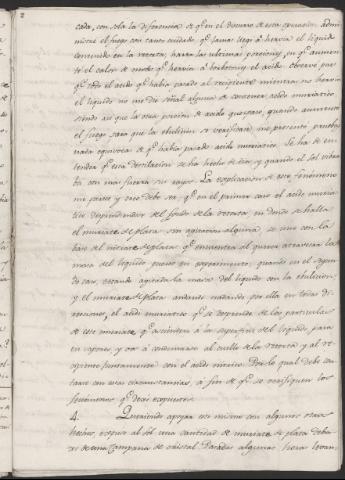 2
cada, con sola la diferencia de qe. en el discurso de esta operacion admi-
nistré el fuego con tanto cuidado, qe. jamas llegó á hervir el liquido
contenido en la retorta, hasta las ultimas porciones, en qe. aumen-
té el calor de modo qe. hervia á borbotones el acido. Observé pues
qe. todo el acido qe. habia pasado al recipiente mientras no hervia
el liquido no me dió señal alguna de contener acido muriatico
siendo asi que la otra porcion de acido que pasó, quando aumenté
el fuego para que la ebulicion se verificara, me presentó pruebas
nada equivocas de qe. habia pasado acido muriatico. Se ha de en-
tender qe. esta destilacion se ha hecho de dia, y quando el sol vibra-
ba con mas fuerza sus rayos. La explicacion de este fenómeno
me parece y creo debe ser, qe. en el primer caso el acido muria-
tico desprendiendose del fondo de la retorta, en donde se halla
el muriate de plata sin agitacion alguna, se une con la
base del nitrate de plata qe. encuentra al querer atravesar la
masa del liquido puesto en experimento; quando en el segun-
do caso, estando agitada la masa del liquido con la ebulicion,
y el muriate de plata andante nadando por ella en todas di-
recciones, el acido muriatico qe. se desprende de las particulas
de este muriate qe. ascienden á la superficie del liquido, pasa
en vapores, y vá á condensarse al cuello de la retorta y al re-
cipiente juntamente con el acido nitrico. Por lo qual debe con-
tarse con estas circunstancias, á fin de qe. se verifiquen los
fenómenos qe. dexo expuestos.
4. Queriendo apoyar esto mismo con algunos otros
hechos, expuse al sol una cantidad de muriate de plata deba-
xo de una campana de cristal. Pasadas algunas horas levan-